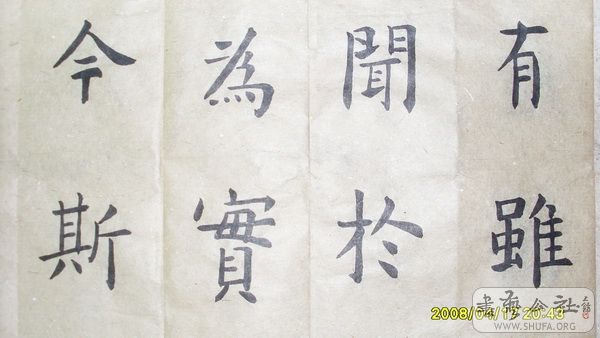 有雖
聞於
為實
今斯
2008/04/13 20:43
書法会社
WWW.SHUFA.ORG